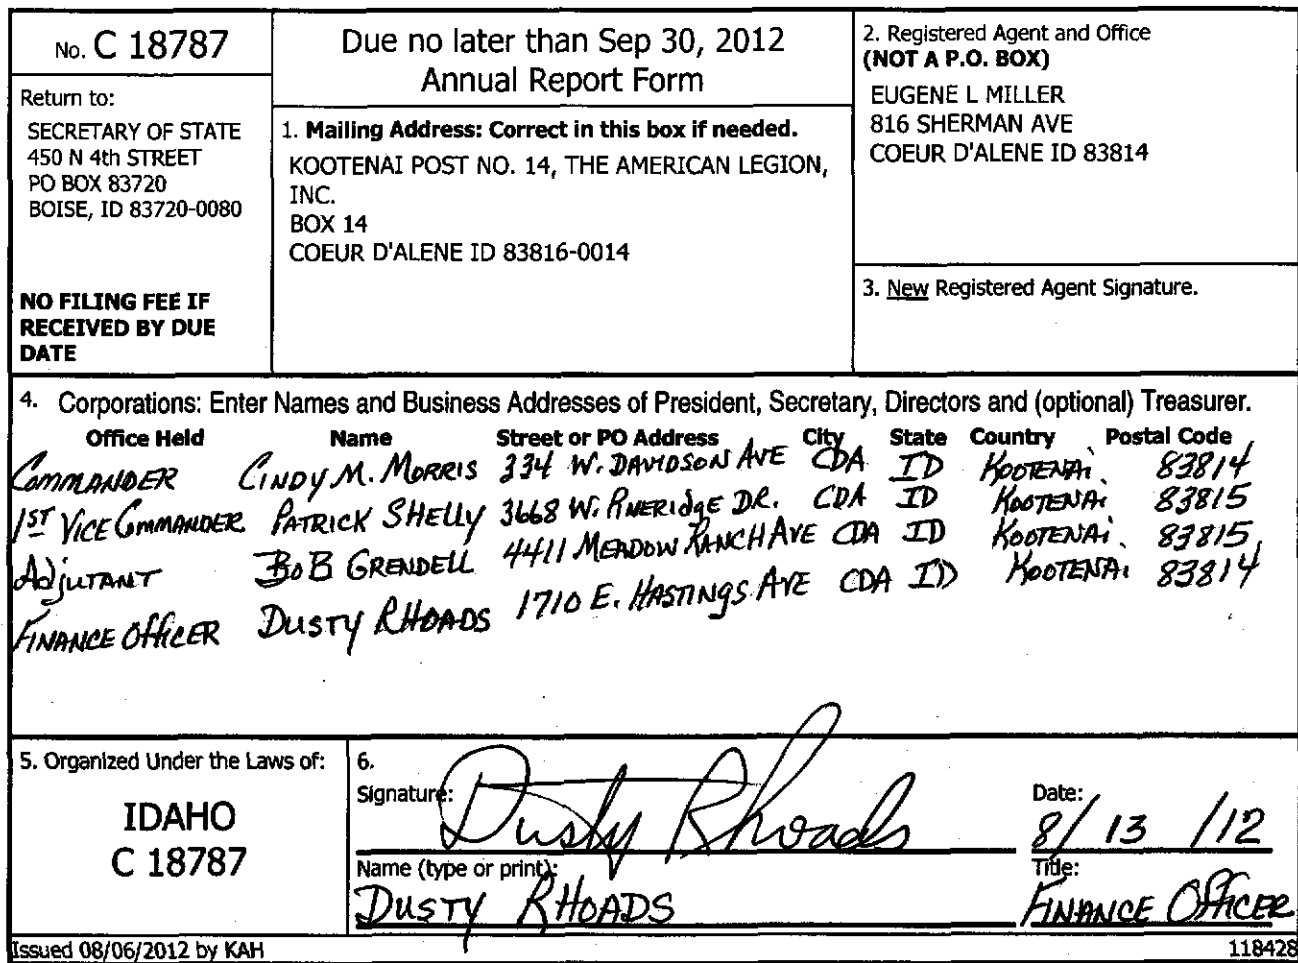 No. C 18787
Return to:
SECRETARY OF STATE
450 N 4th STREET
PO BOX 83720
BOISE, ID 83720-0080
NO FILING FEE IF
RECEIVED BY DUE
DATE
Due no later than Sep 30, 2012
Annual Report Form
1. Mailing Address: Correct in this box if needed.
KOOTENAI POST NO. 14, THE AMERICAN LEGION,
INC.
BOX 14
COEUR D'ALENE ID 83816-0014
2. Registered Agent and Office
(NOT A P.O. BOX)
EUGENE L MILLER
816 SHERMAN AVE
COEUR D'ALENE ID 83814
3. New Registered Agent Signature.
4. Corporations: Enter Names and Business Addresses of President, Secretary, Directors and (optional) Treasurer.
Office Held Name Street or PO Address City State Country Postal Code
COMMANDER CINDY M. MORRIS 334 W. DAVIDSON AVE CDA ID KOOTENAi 83814
1ST VICE COMMANDER PATRICK SHELLY 3668 W. RIVERIdgE DR. CDA ID KOOTENAi 83815
AdjUTANT BOB GRENDELL 4411 MEADOW RANCH AVE CDA ID KOOTENAi 83815
FINANCE OffICER DUSTY RHOADS 1710 E. HASTINGS AVE CDA ID KOOTENAi 83814
5. Organized Under the Laws of:
IDAHO
C 18787
6.
Signature: Dusty Rhoads
Date: 8/13/12
Name (type or print): DUSTY RHOADS
Title: FINANCE OFFICER
Issued 08/06/2012 by KAH
118428